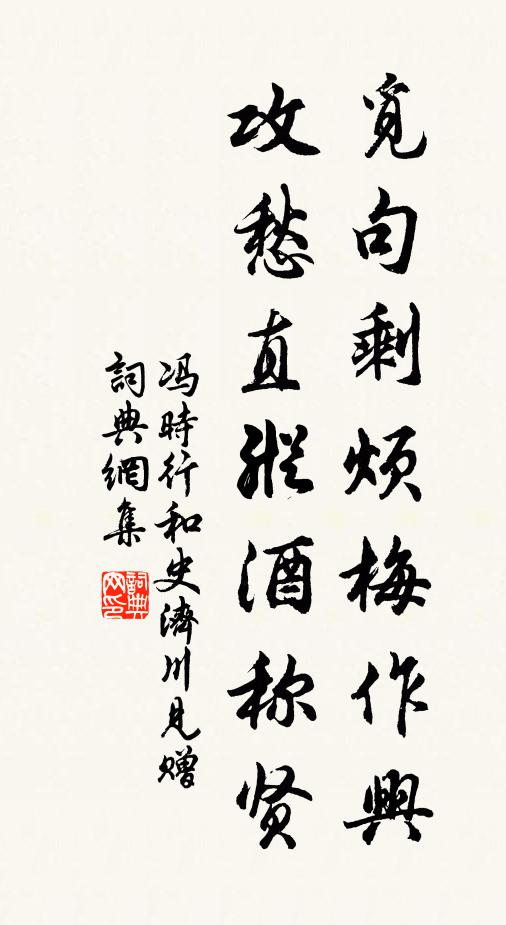 觅句剩烦梅作興
攻愁直緃酒称贤
冯時行和史濟川見赠
詞典網集
詞典网印